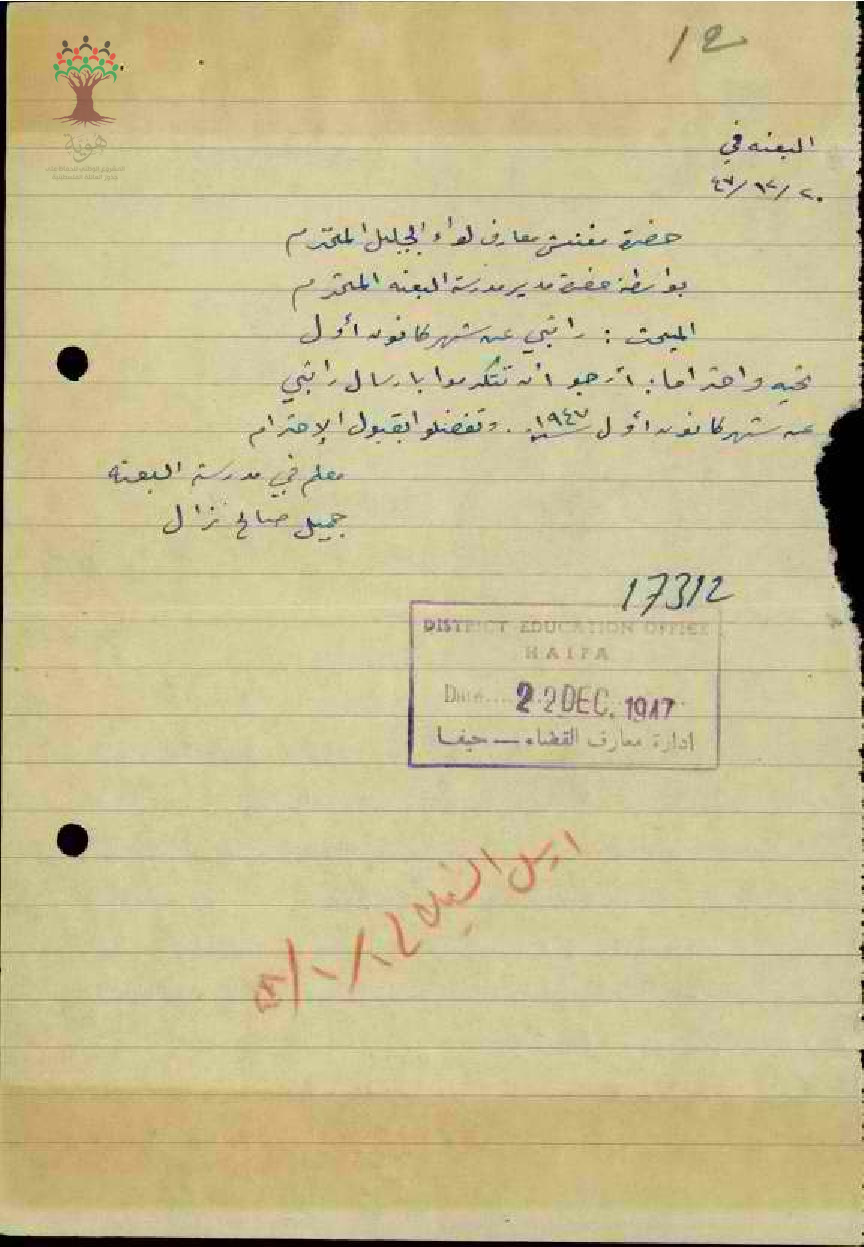 12
هوية
البعنه في
٢٠/١٢/٤٧
حضرة مفتش معارف لواء الجليل المحترم
بواسطة حضرة مدير مدرسة البعنه المحترم
المبحث : راتبي عن شهر كانون أول
تحيه واحتراما: أرجو أن تتكرموا بارسال راتبي
عن شهر كانون أول سنة ١٩٤٧. وتفضلوا بقبول الإحترام
معلم في مدرسة البعنه
جميل صالح نزال
17312
DISTRICT EDUCATION OFFICE
HAIFA
Date.... 22 DEC. 1947
ادارة معارف القضاء — حيفا
ارسل